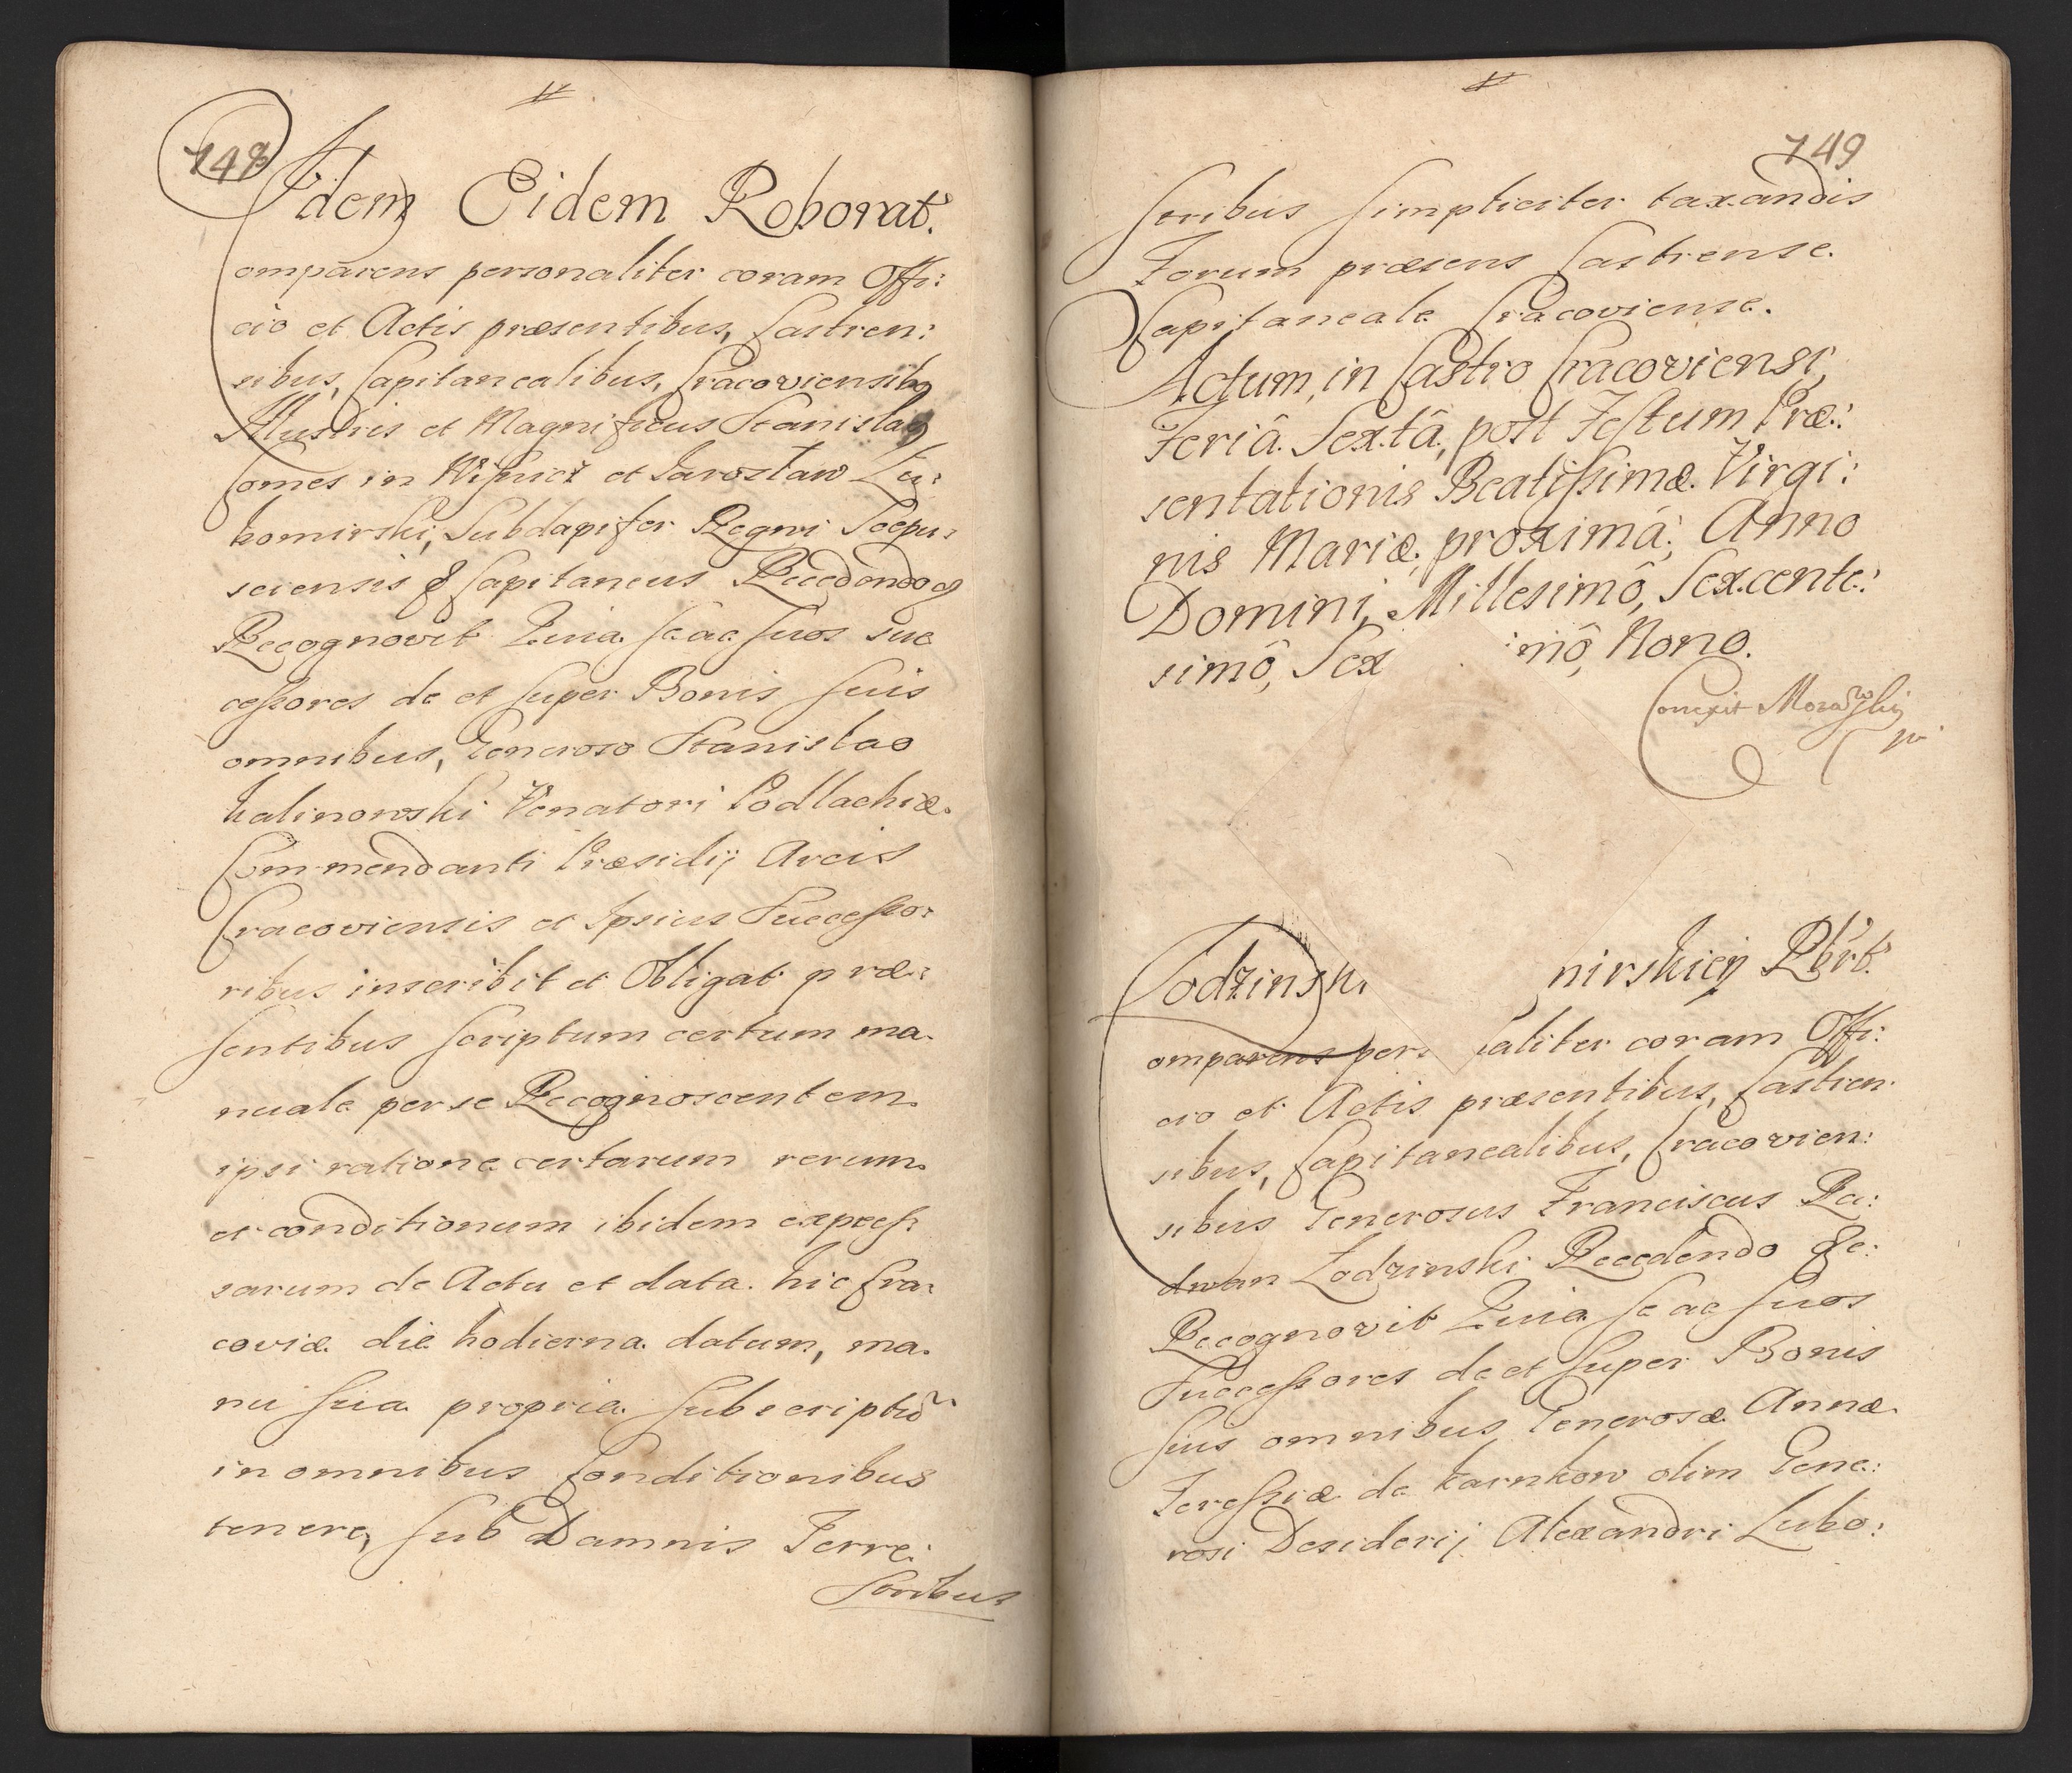 748
Idem Eidem Roborat.
omparens personaliter coram Offi:
cio et Actis præsentibus, Castren:
sibus, Capitanealibus, Cracoviensibg
Illustris et Magnificus Stanislag
Comes in Wiśnicz et Jarosław Lu:
bomirski, Subdapifer Regni Scepu:
sciensis & Capitaneus Recedendo &
Recognovit Quia se ac suos suc
cessores de et super Bonis suis
omnibus, Generoso Stanislao
Kalinowski Venatori Podlachiæ
Commendanti Præsidij Arcis
Cracoviensis et Ipsius Successo:
ribus inscribit et Obligat præ:
sentibus scriptum certum ma
nuale per se Recognoscentem
ipsi ratione certarum rerum
et conditionum ibidem expres:
sarum de Actu et data hic Cra:
coviæ die hodierna datum, ma
nu sua propria subscriptũ
in omnibus Conditionibus
tenere, sub Damnis Terre:
storibus
749
storibus simpliciter taxandis
Forum præsens Castrense
Capitaneale Cracoviense.
Actum, in Castro Cracoviensi,
Feriâ Sextâ, post Festum Præ:
sentationis Beatissimæ Virgi:
nis Mariæ, proximâ; Anno
Domini, Millesimô, Sexcente:
simô, Sex mô, Nono.
Conexit Morawski
Lodzinsk nirskiey Rbrt.
omparens pers aliter coram Offi:
cio et Actis præsentibus, Castren
sibus, Capitanealibus, Cracovien:
sibus Generosus Franciscus Ra:
dwan Lodzinski Recedendo &c:
Recognovit Quia se ac suos
Successores de et super Bonis
suis omnibus Generosæ Annæ
Teressiæ de Karnkow olim Gene:
rosi Desiderij Alexandri Lubo: